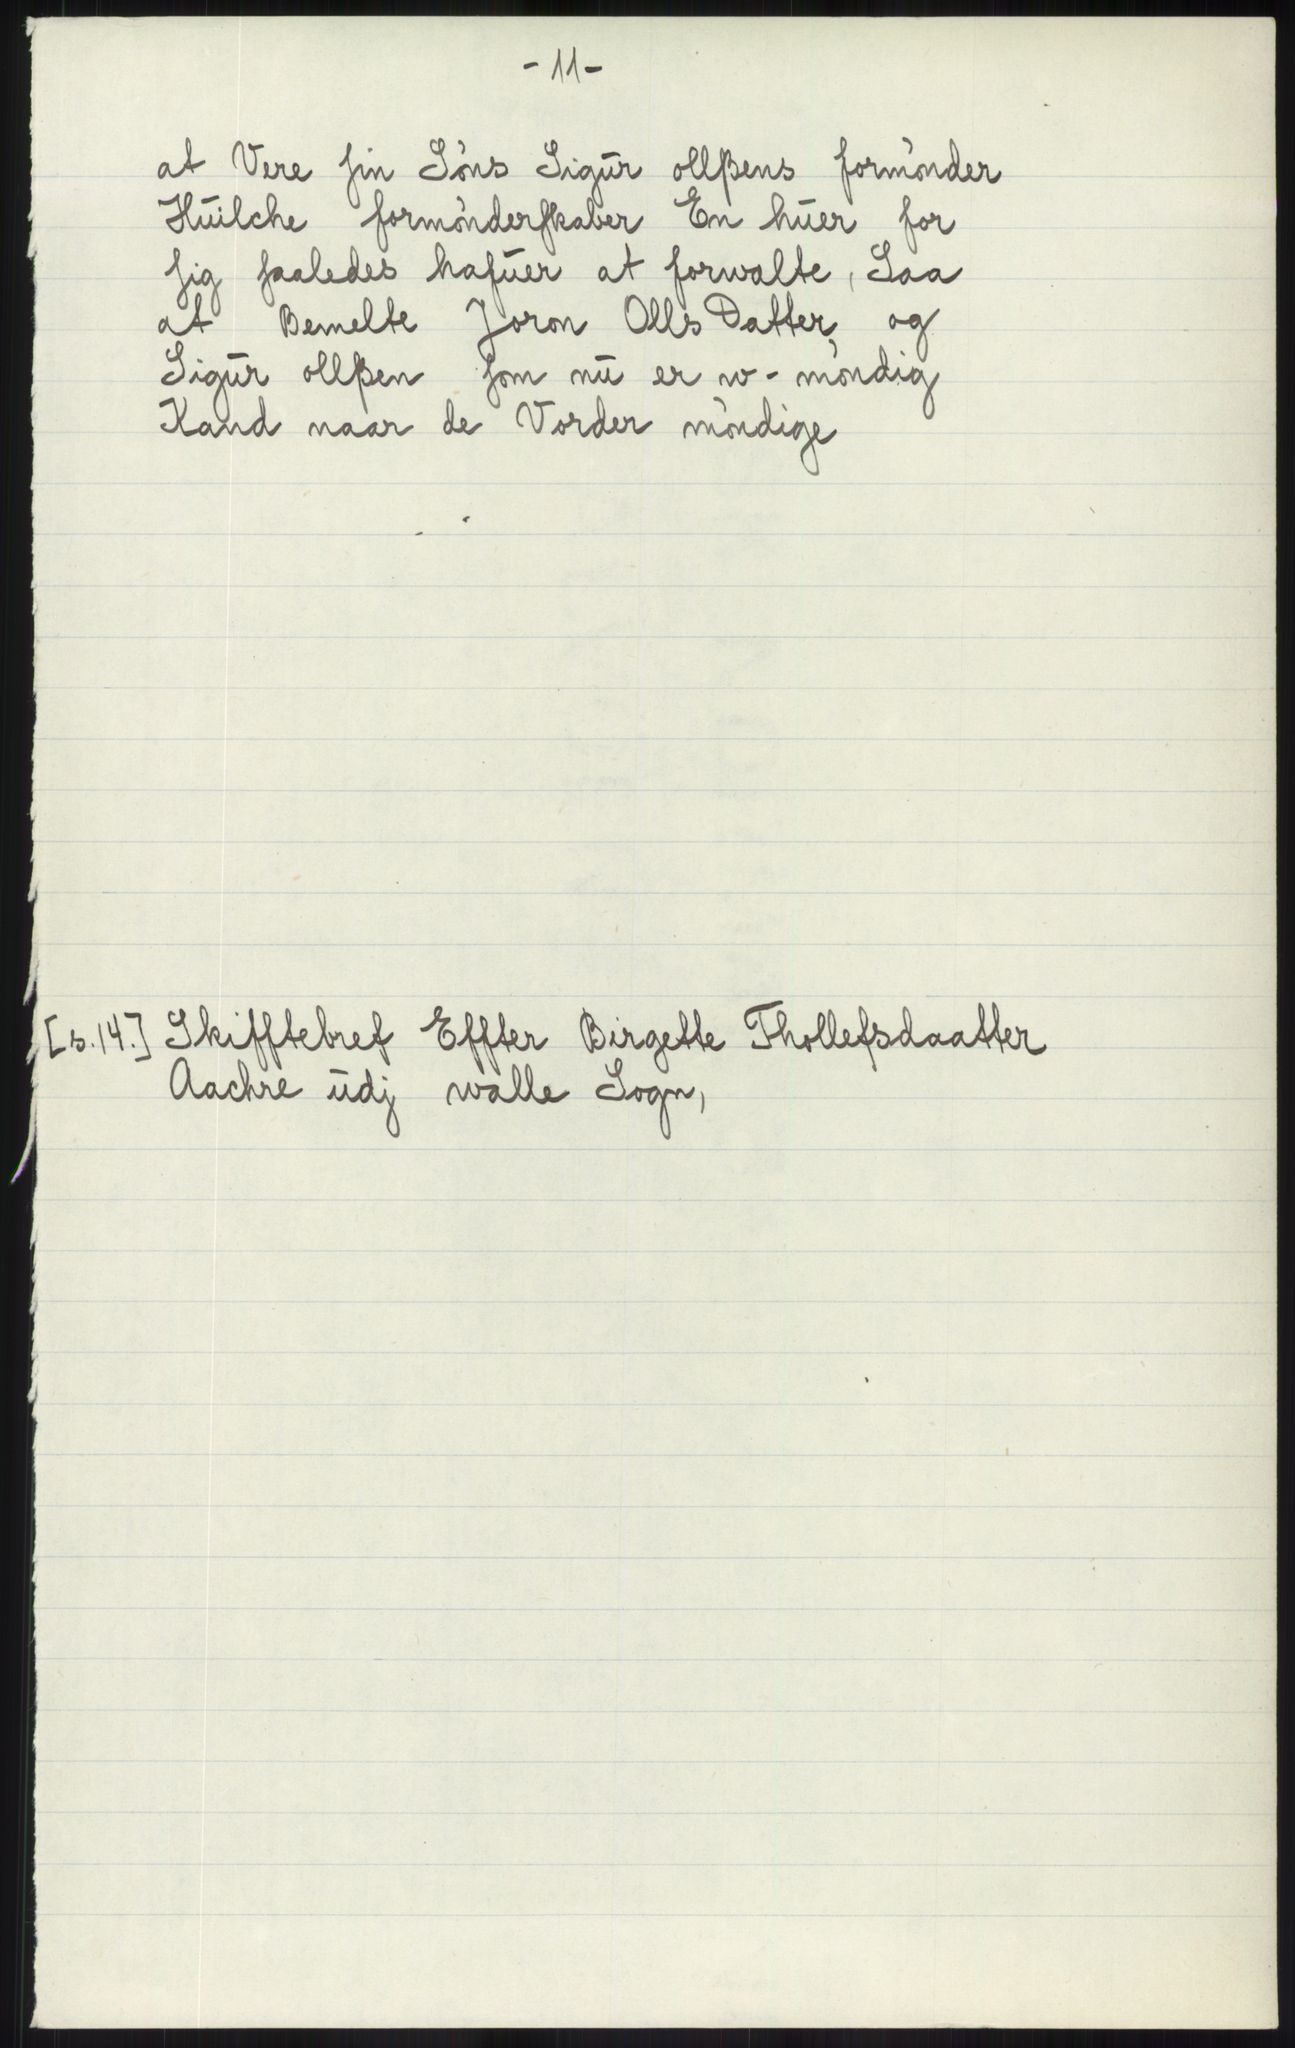 - 11 -
at Vere ſin Söns Sigūr ollßens formönder
Hūilche formönderſkaber En hūer for
ſig ſaaledes hafūer at forwalte, Saa
at Bemelte Joron Olls Datter, og
Sigūr ollßen ſom nū er w- möndig
Kand naar de Vorder möndige
[s. 14.] Skifftebref Effter Birgette Thollefsdaatter
Aachre ūdj walle Sogn,